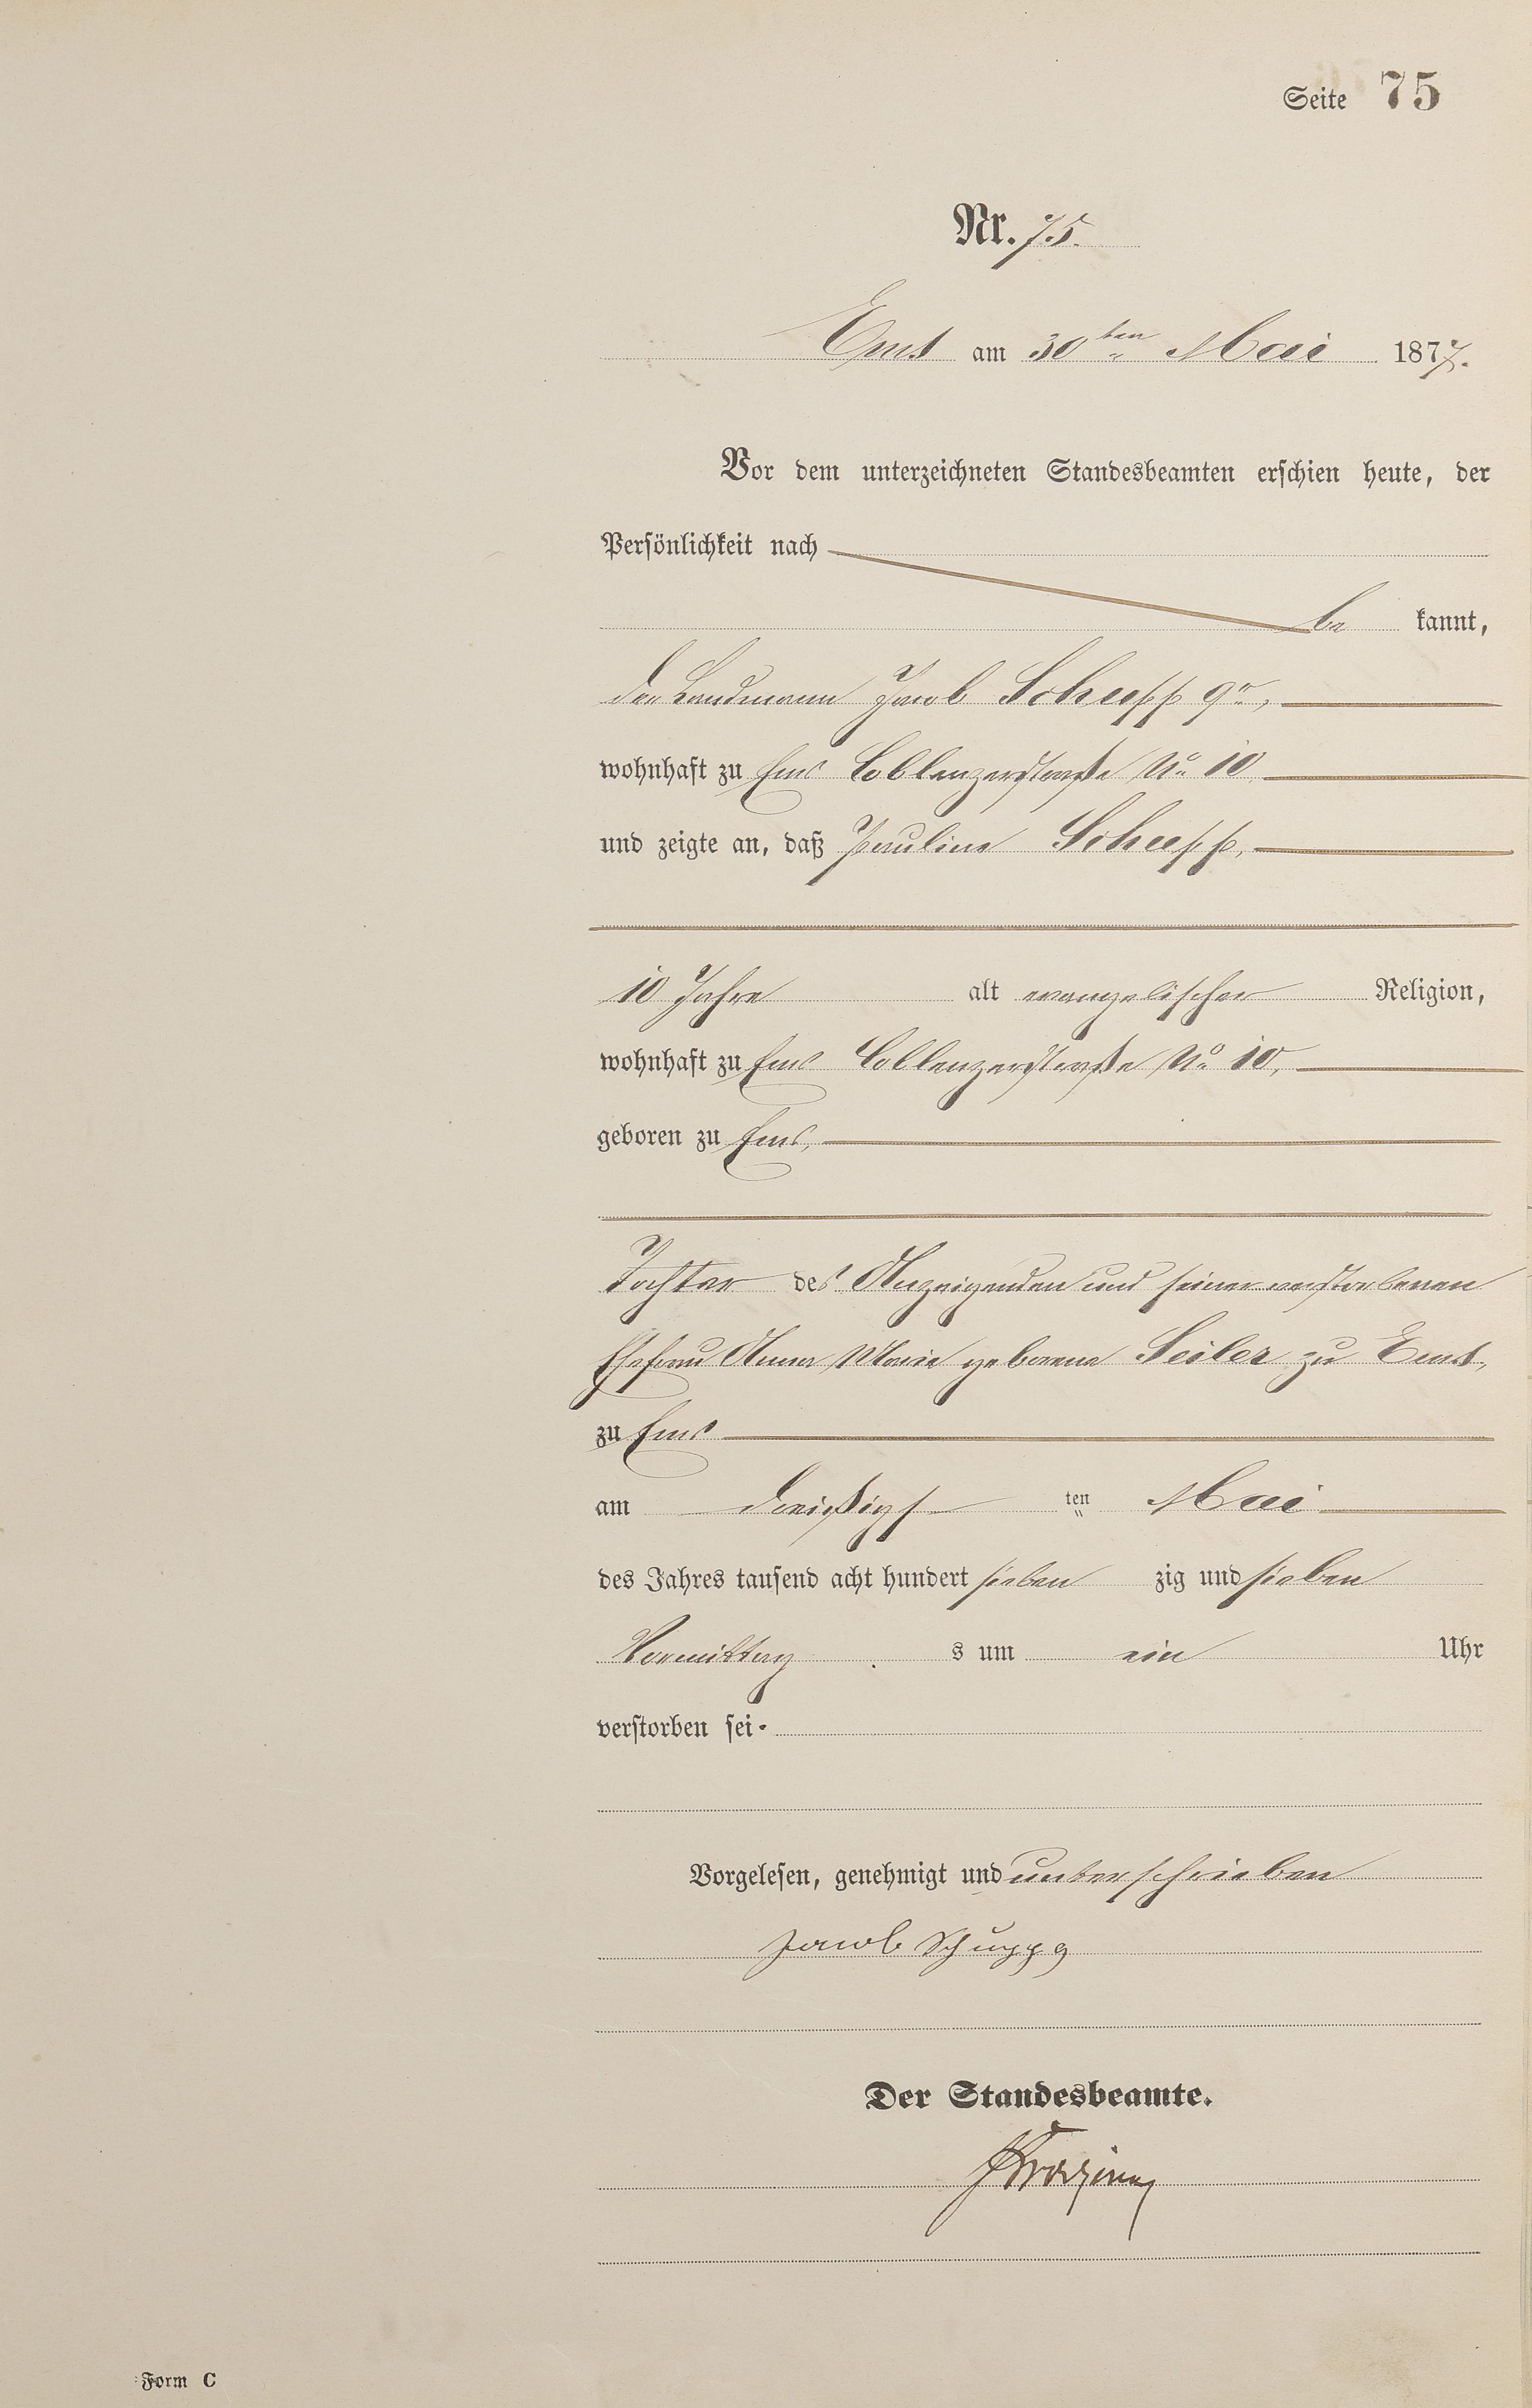 Seite 75
Nr. 75.
Ems am 30ten Mai 1877.
Vor dem unterzeichneten Standesbeamten erschien heute, der
Persönlichkeit nach
be kannt,
der Landmann Jacob Schupp 9r,
wohnhaft zu Ems Coblenzerstraße No 10
und zeigte an, daß Pauline Schupp,
10 Jahre alt evangelischer Religion,
wohnhaft zu Ems Coblenzerstraße No 10,
geboren zu Ems,
Tochter des Anzeigenden und seiner verstorbenen
Ehefrau Anna Marie geborene Seiler zu Ems,
zu Ems
am dreißigs ten Mai
des Jahres tausend acht hundert sieben zig und sieben
Vormittag s um ein Uhr
verstorben sei.
Vorgelesen, genehmigt und unterschrieben
Jacob Schupp 9
Der Standesbeamte.
Form C